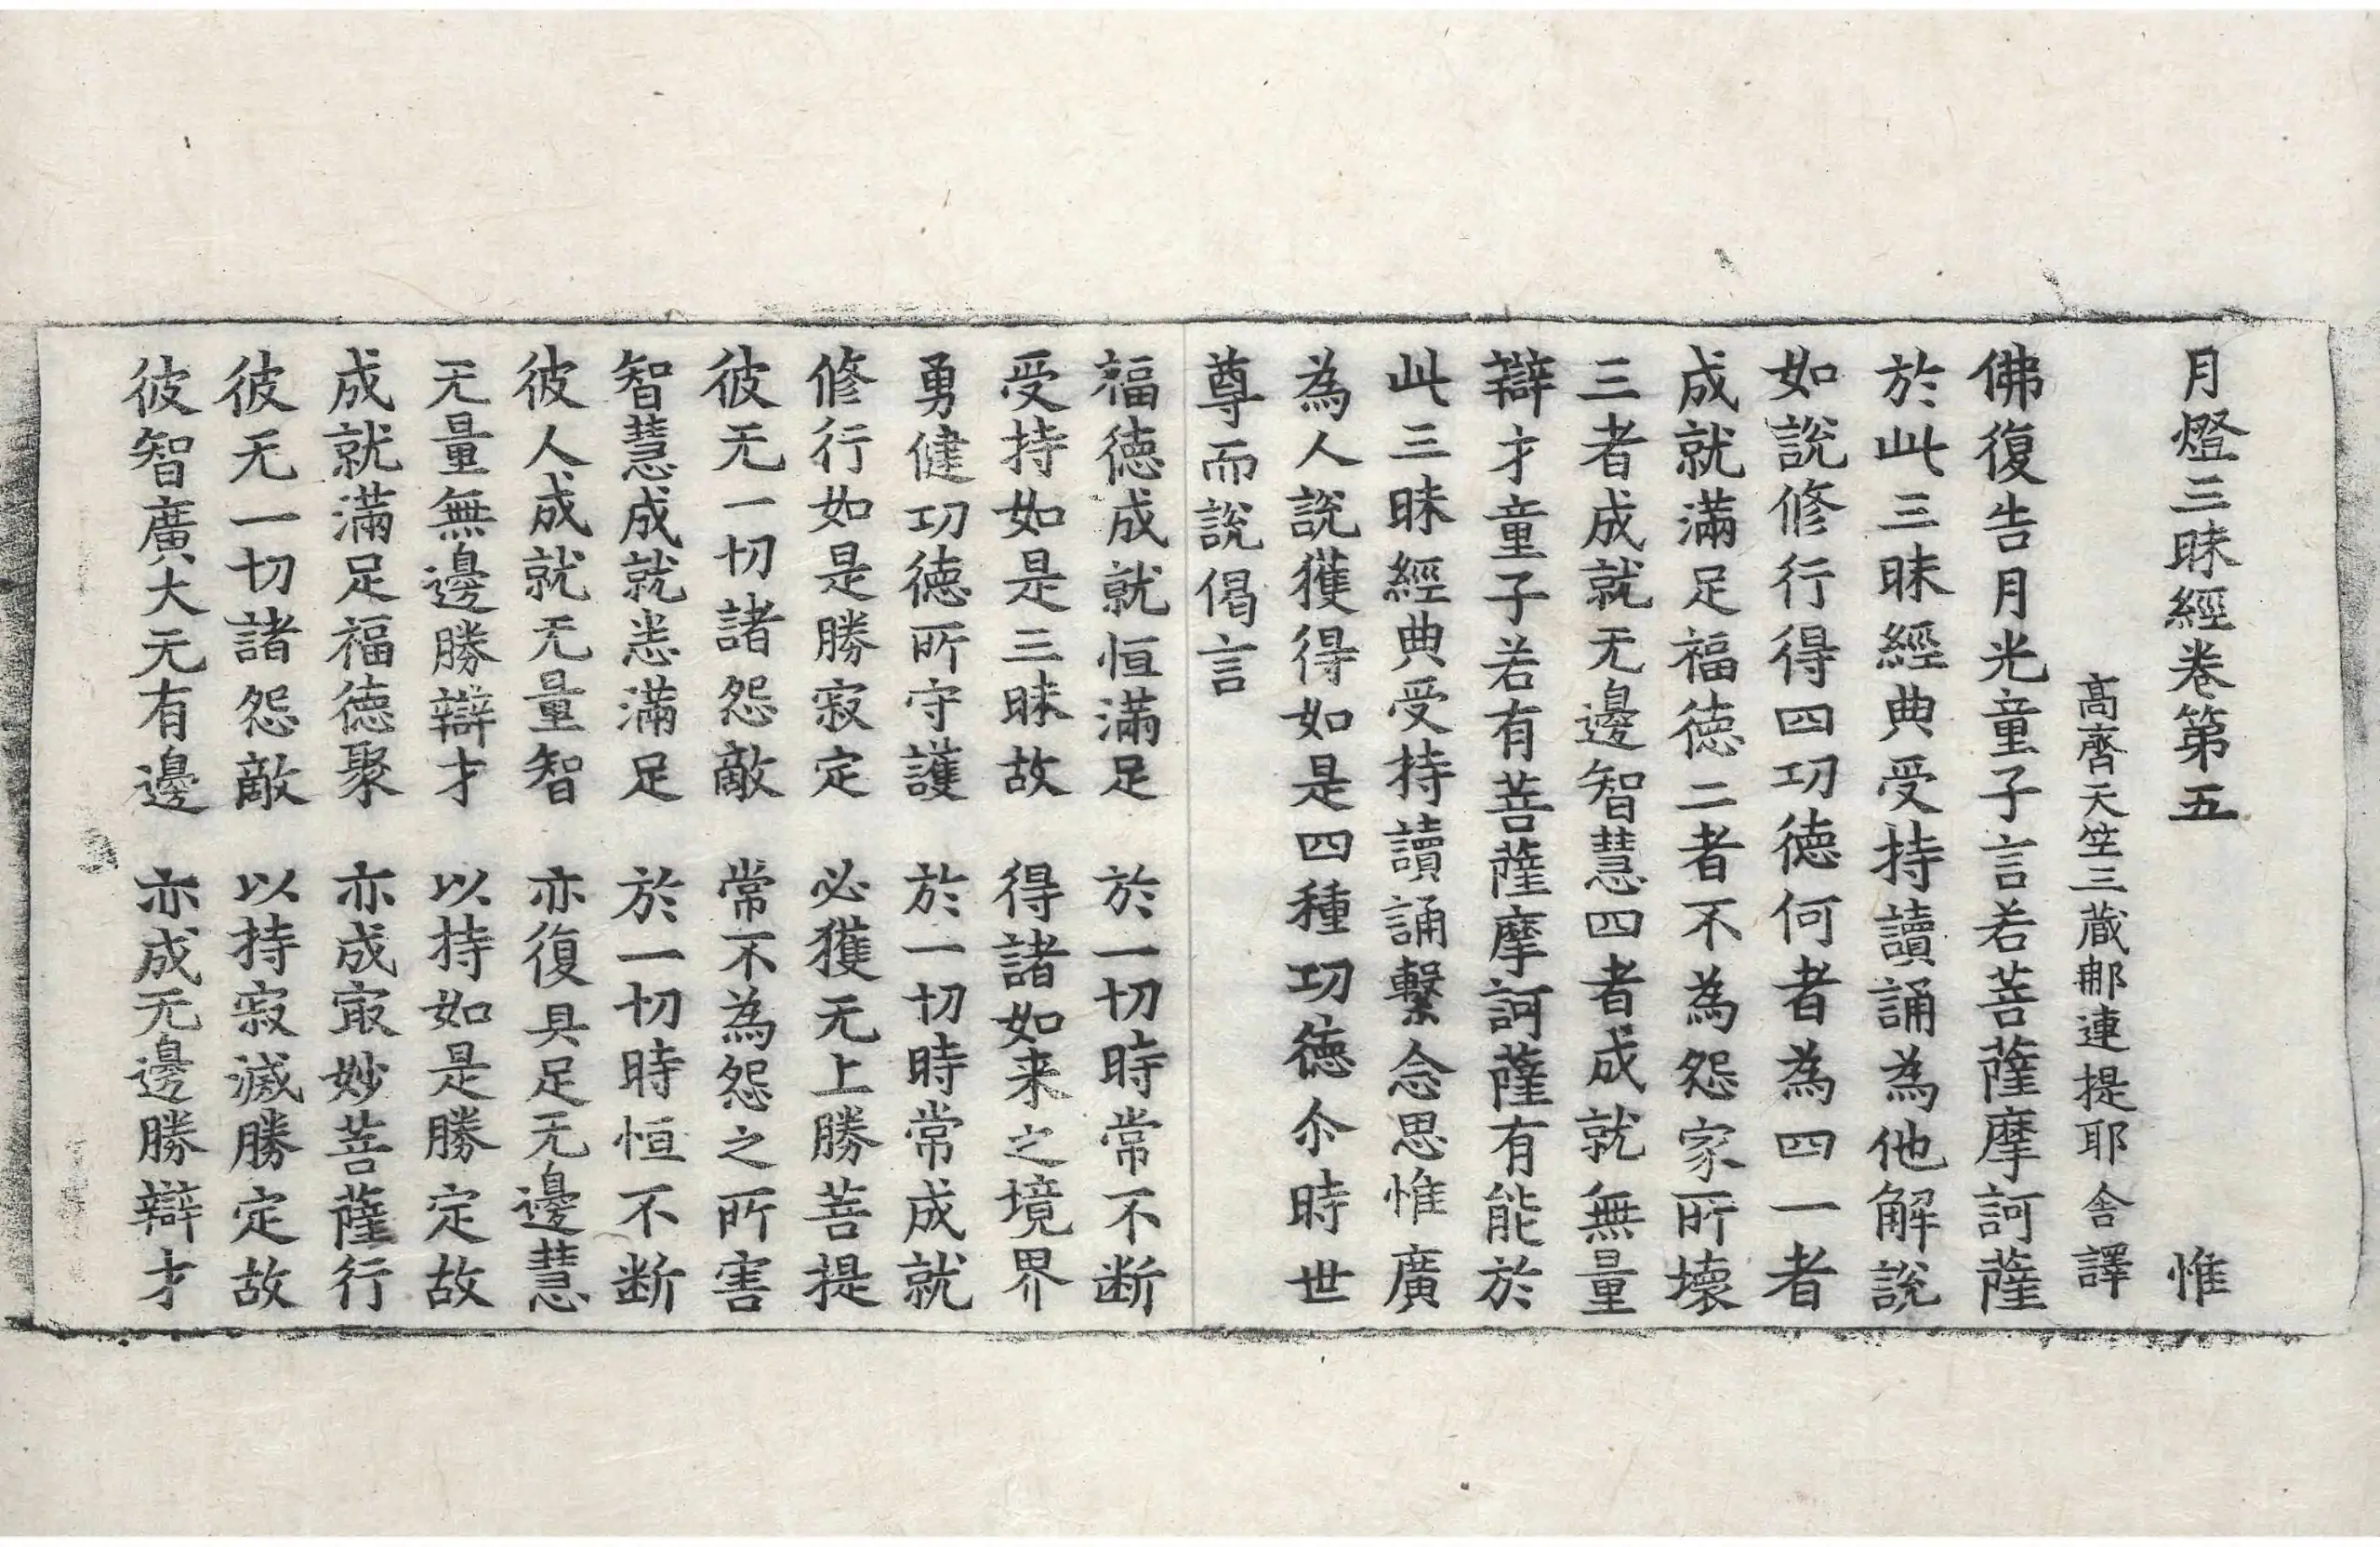 月燈三昧經卷第五　惟
髙齊天笁三藏𨚗連提耶舍譯
佛復告月光童子言若菩薩摩訶薩
於此三昧經典受持讀誦為他解說
如說修行得四功徳何者為四一者
成就滿足福徳二者不為怨家所壞
三者成就无邊智慧四者成就無量
辯才童子若有菩薩摩訶薩有能於
此三昧經典受持讀誦繫念思惟廣
為人說獲得如是四種功徳尒時世
尊而說偈言
福徳成就恒滿足　於一切時常不断
受持如是三昧故　得諸如来之境界
勇健功徳所守護　於一切時常成就
修行如是勝寂定　必獲无上勝菩提
彼无一切諸怨敵　常不為怨之所害
智慧成就悉滿足　於一切時恒不断
彼人成就无量智　亦復具足无邊慧
无量無邊勝辯才　以持如是勝定故
成就滿足福徳聚　亦成㝡妙菩薩行
彼无一切諸怨敵　以持寂滅勝定故
彼智廣大无有邊　亦成无邊勝辯才